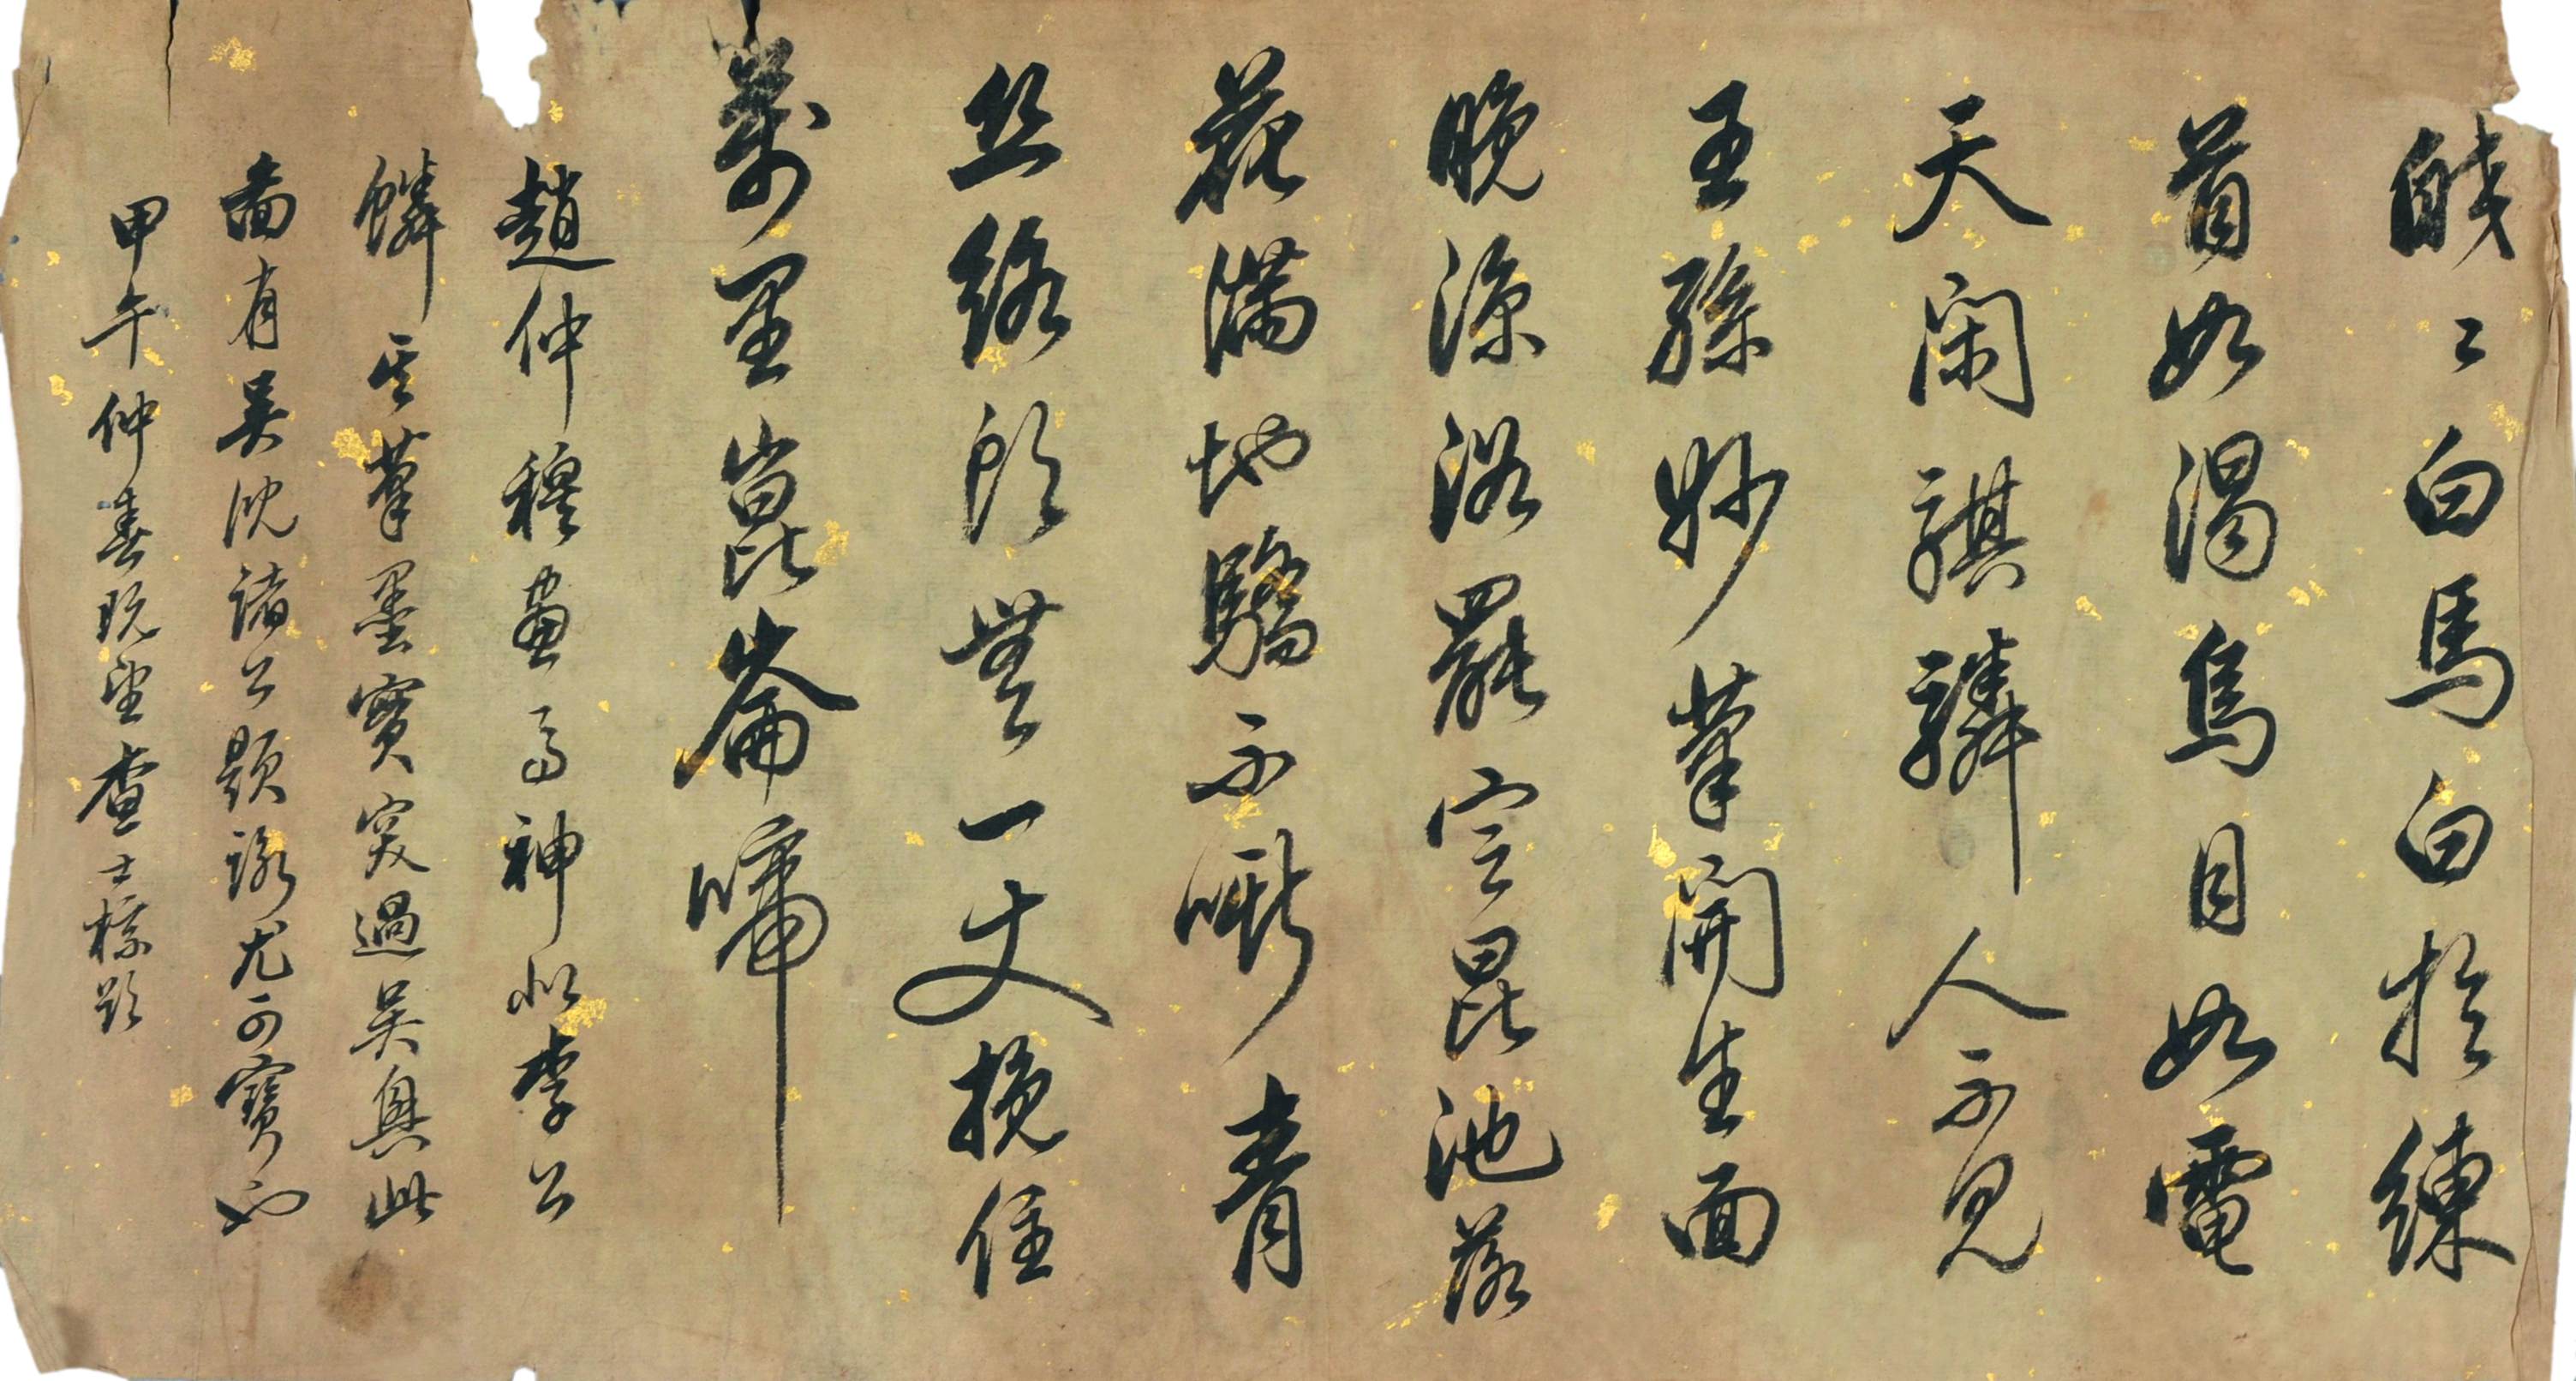 皎〻白馬白於練
首如渴烏目如電
天閑騏驎人不見
王孫妙筆開生面
晚涼浴罷空昆池落
花滿地驕不嘶青
絲絡頭無一丈挽住
萬里崑崙啼
趙仲穆畫馬神似李公
麟其筆墨實突過吳興此
圖有吳沈諸公題詠尤可寶也
甲午仲春既望查士標題